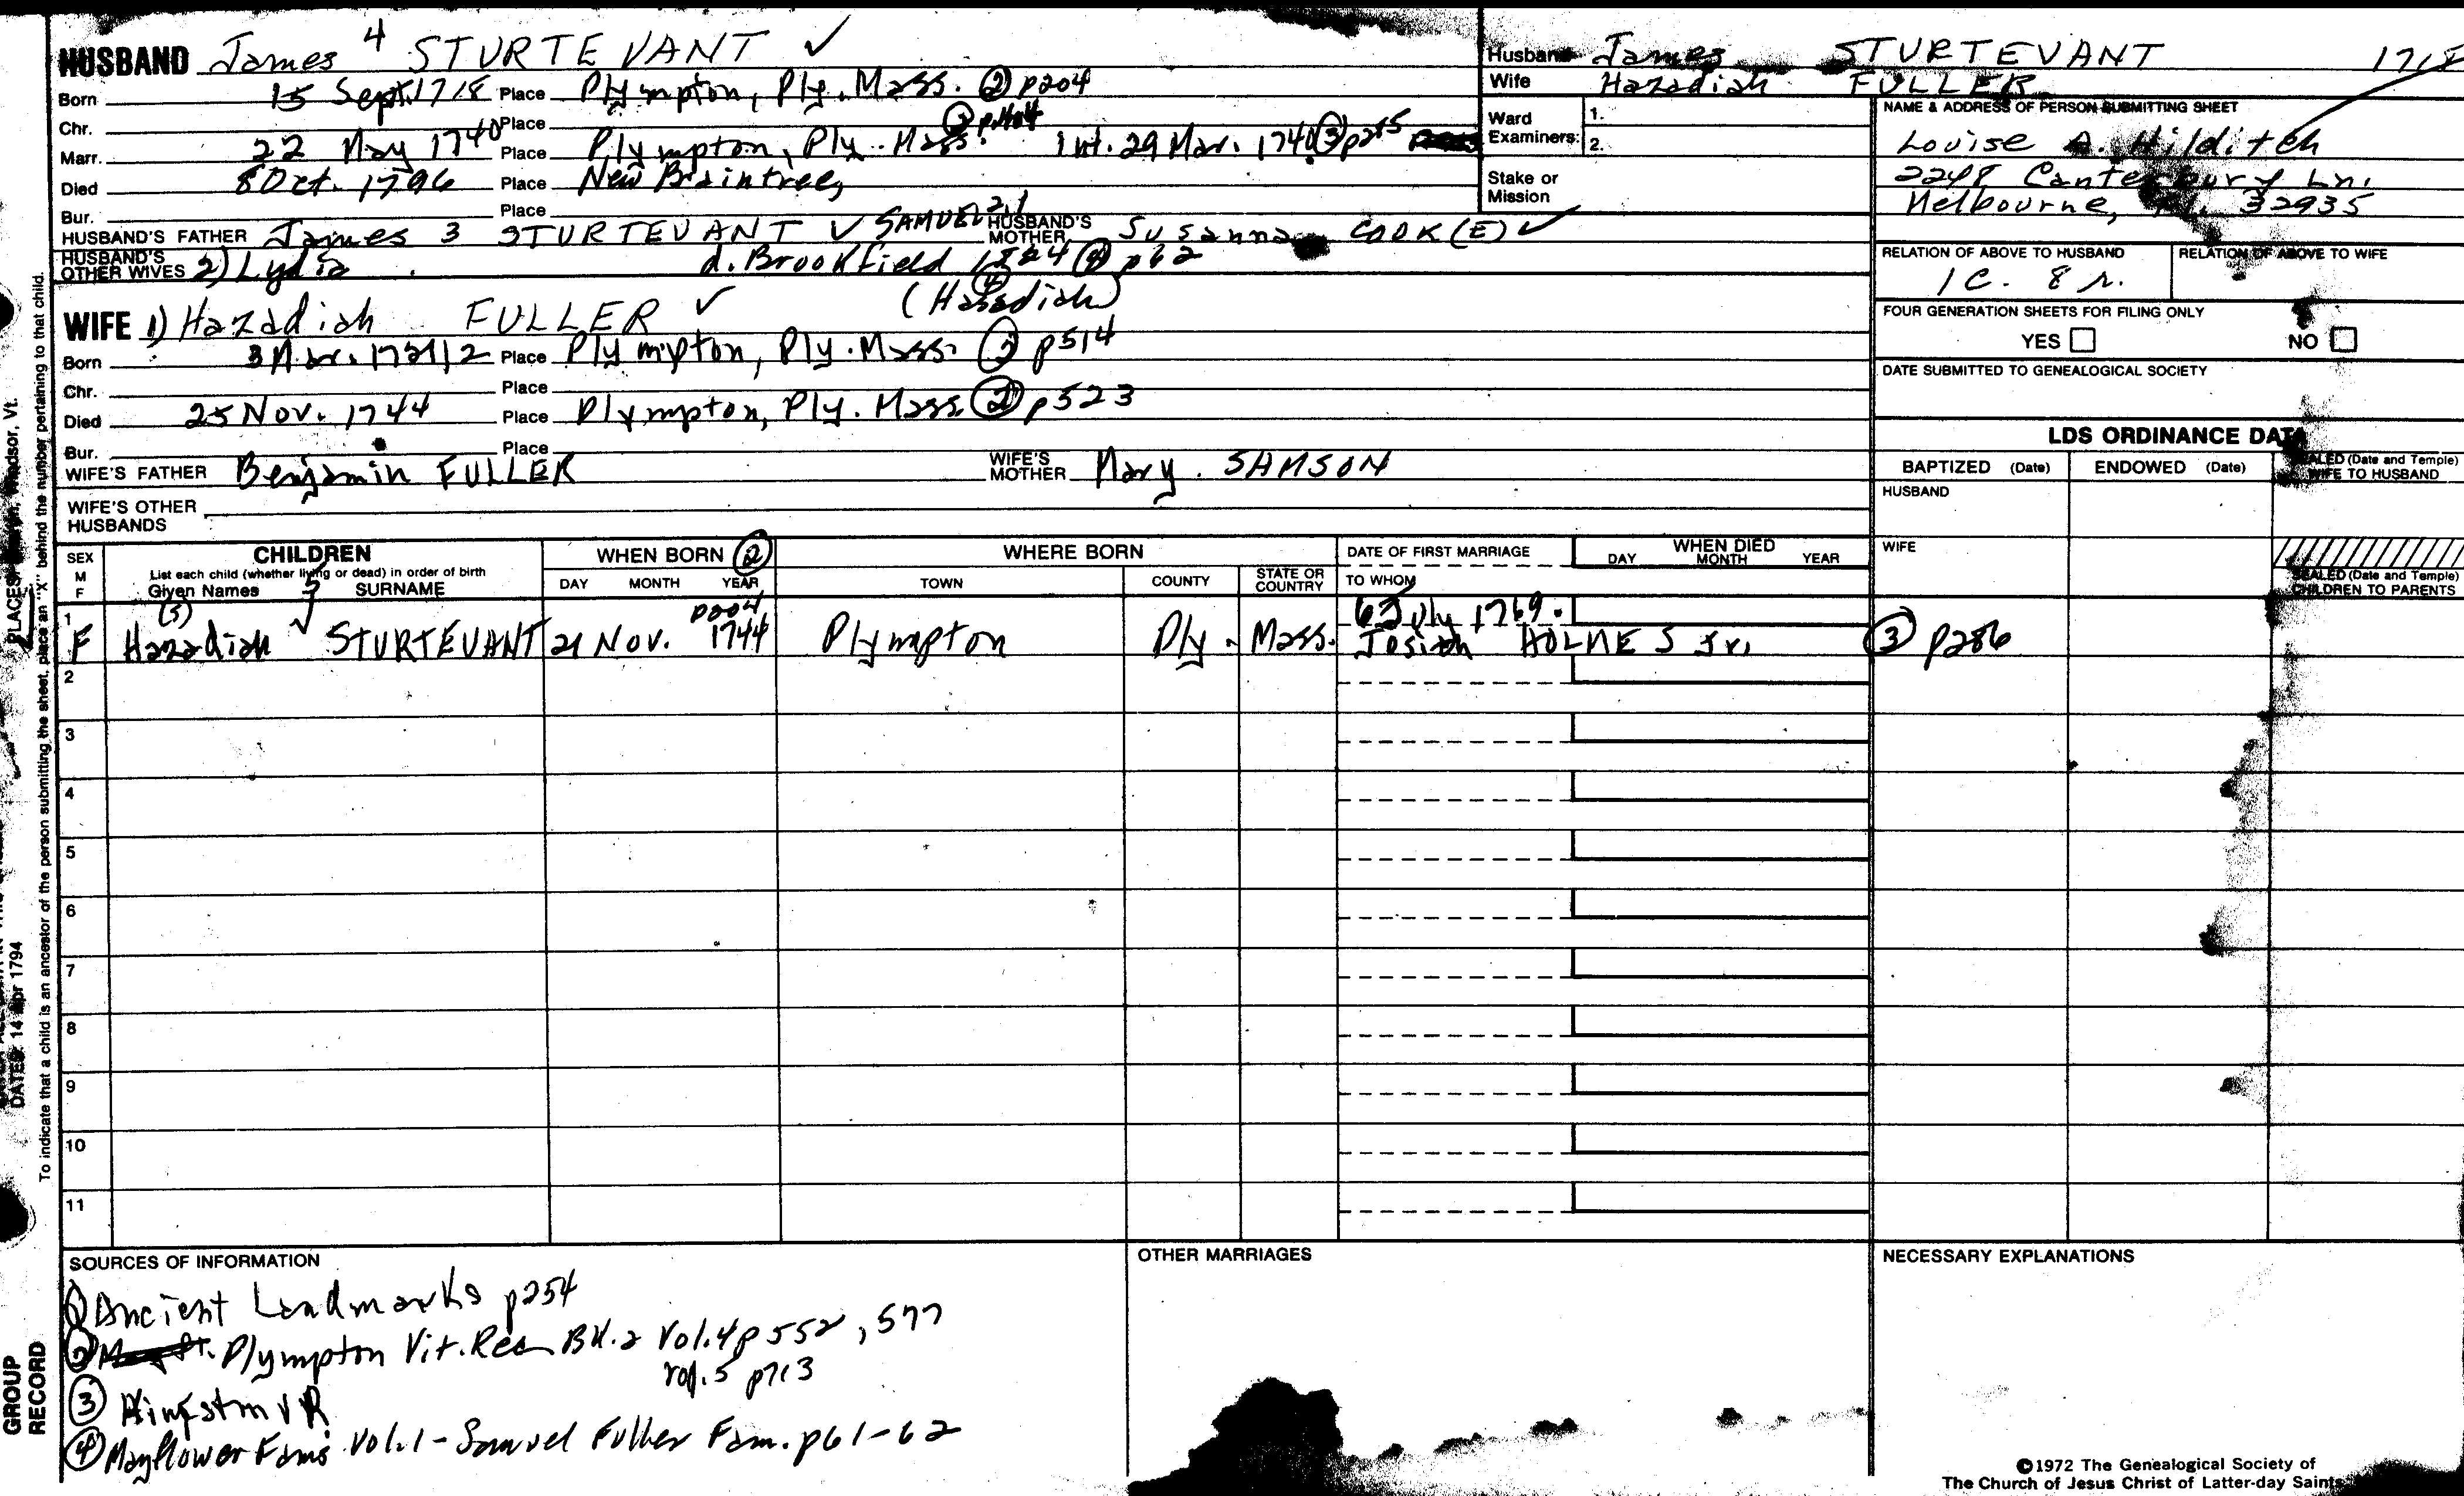 HUSBAND James 4 STURTEVANT ✓
Born 15 Sept. 1718 Place Plympton, Ply. Mass. ② p204
Chr. Place
Marr. 22 May 1740 Place Plympton, Ply. Mass. Int. 29 Mar. 1740 ③ p285
Died 8 Oct. 1796 Place New Braintree,
Bur. Place
HUSBAND'S FATHER James 3 STURTEVANT ✓ SAMUEL 2,1 HUSBAND'S MOTHER Susanna COOK (E) ✓
HUSBAND'S OTHER WIVES 2) Lydia d. Brookfield ④ p62
(Hasadiah) ④
WIFE 1) Hazadiah FULLER ✓
Born 3 Mar. 1721/2 Place Plympton, Ply. Mass. ② p514
Chr. Place
Died 25 Nov. 1744 Place Plympton, Ply. Mass. ② p523
Bur. Place
WIFE'S FATHER Benjamin FULLER WIFE'S MOTHER Mary SAMSON
WIFE'S OTHER HUSBANDS
Husband James STURTEVANT 1718
Wife Hazadiah FULLER
Ward Examiners: 1.
2.
Stake or Mission
NAME & ADDRESS OF PERSON SUBMITTING SHEET
Louise A. Hilditch
2248 Canterbury Ln.
Melbourne, 32935
RELATION OF ABOVE TO HUSBAND RELATION OF ABOVE TO WIFE
1C. 8 r.
FOUR GENERATION SHEETS FOR FILING ONLY
YES NO
DATE SUBMITTED TO GENEALOGICAL SOCIETY
LDS ORDINANCE DATA
BAPTIZED (Date) ENDOWED (Date) SEALED (Date and Temple) WIFE TO HUSBAND
HUSBAND
WIFE
SEALED (Date and Temple) CHILDREN TO PARENTS
SEX M F
CHILDREN
List each child (whether living or dead) in order of birth
Given Names SURNAME
WHEN BORN ②
DAY MONTH YEAR
WHERE BORN
TOWN COUNTY STATE OR COUNTRY
DATE OF FIRST MARRIAGE
TO WHOM
WHEN DIED
DAY MONTH YEAR
p204 6 July 1769.
1 F Hazadiah (s) 5 ✓ STURTEVANT 21 Nov. 1744 Plympton Ply. Mass. Josiah HOLMES Jr. ③ p286
2
3
4
5
6
7
8
9
10
11
SOURCES OF INFORMATION
① Ancient Landmarks p254
② Plympton Vit. Rec. Bk. 2 Vol. 4 p552, 577
Vol. 5 p713
③ Kingston VR
④ Mayflower Fams Vol. 1 - Samuel Fuller Fam. p61-62
OTHER MARRIAGES
NECESSARY EXPLANATIONS
©1972 The Genealogical Society of
The Church of Jesus Christ of Latter-day Saints
To indicate that a child is an ancestor of the person submitting the sheet, place an "X" behind the number pertaining to that child.
Windsor, Vt.
DATES: 14 Apr 1794
GROUP
RECORD